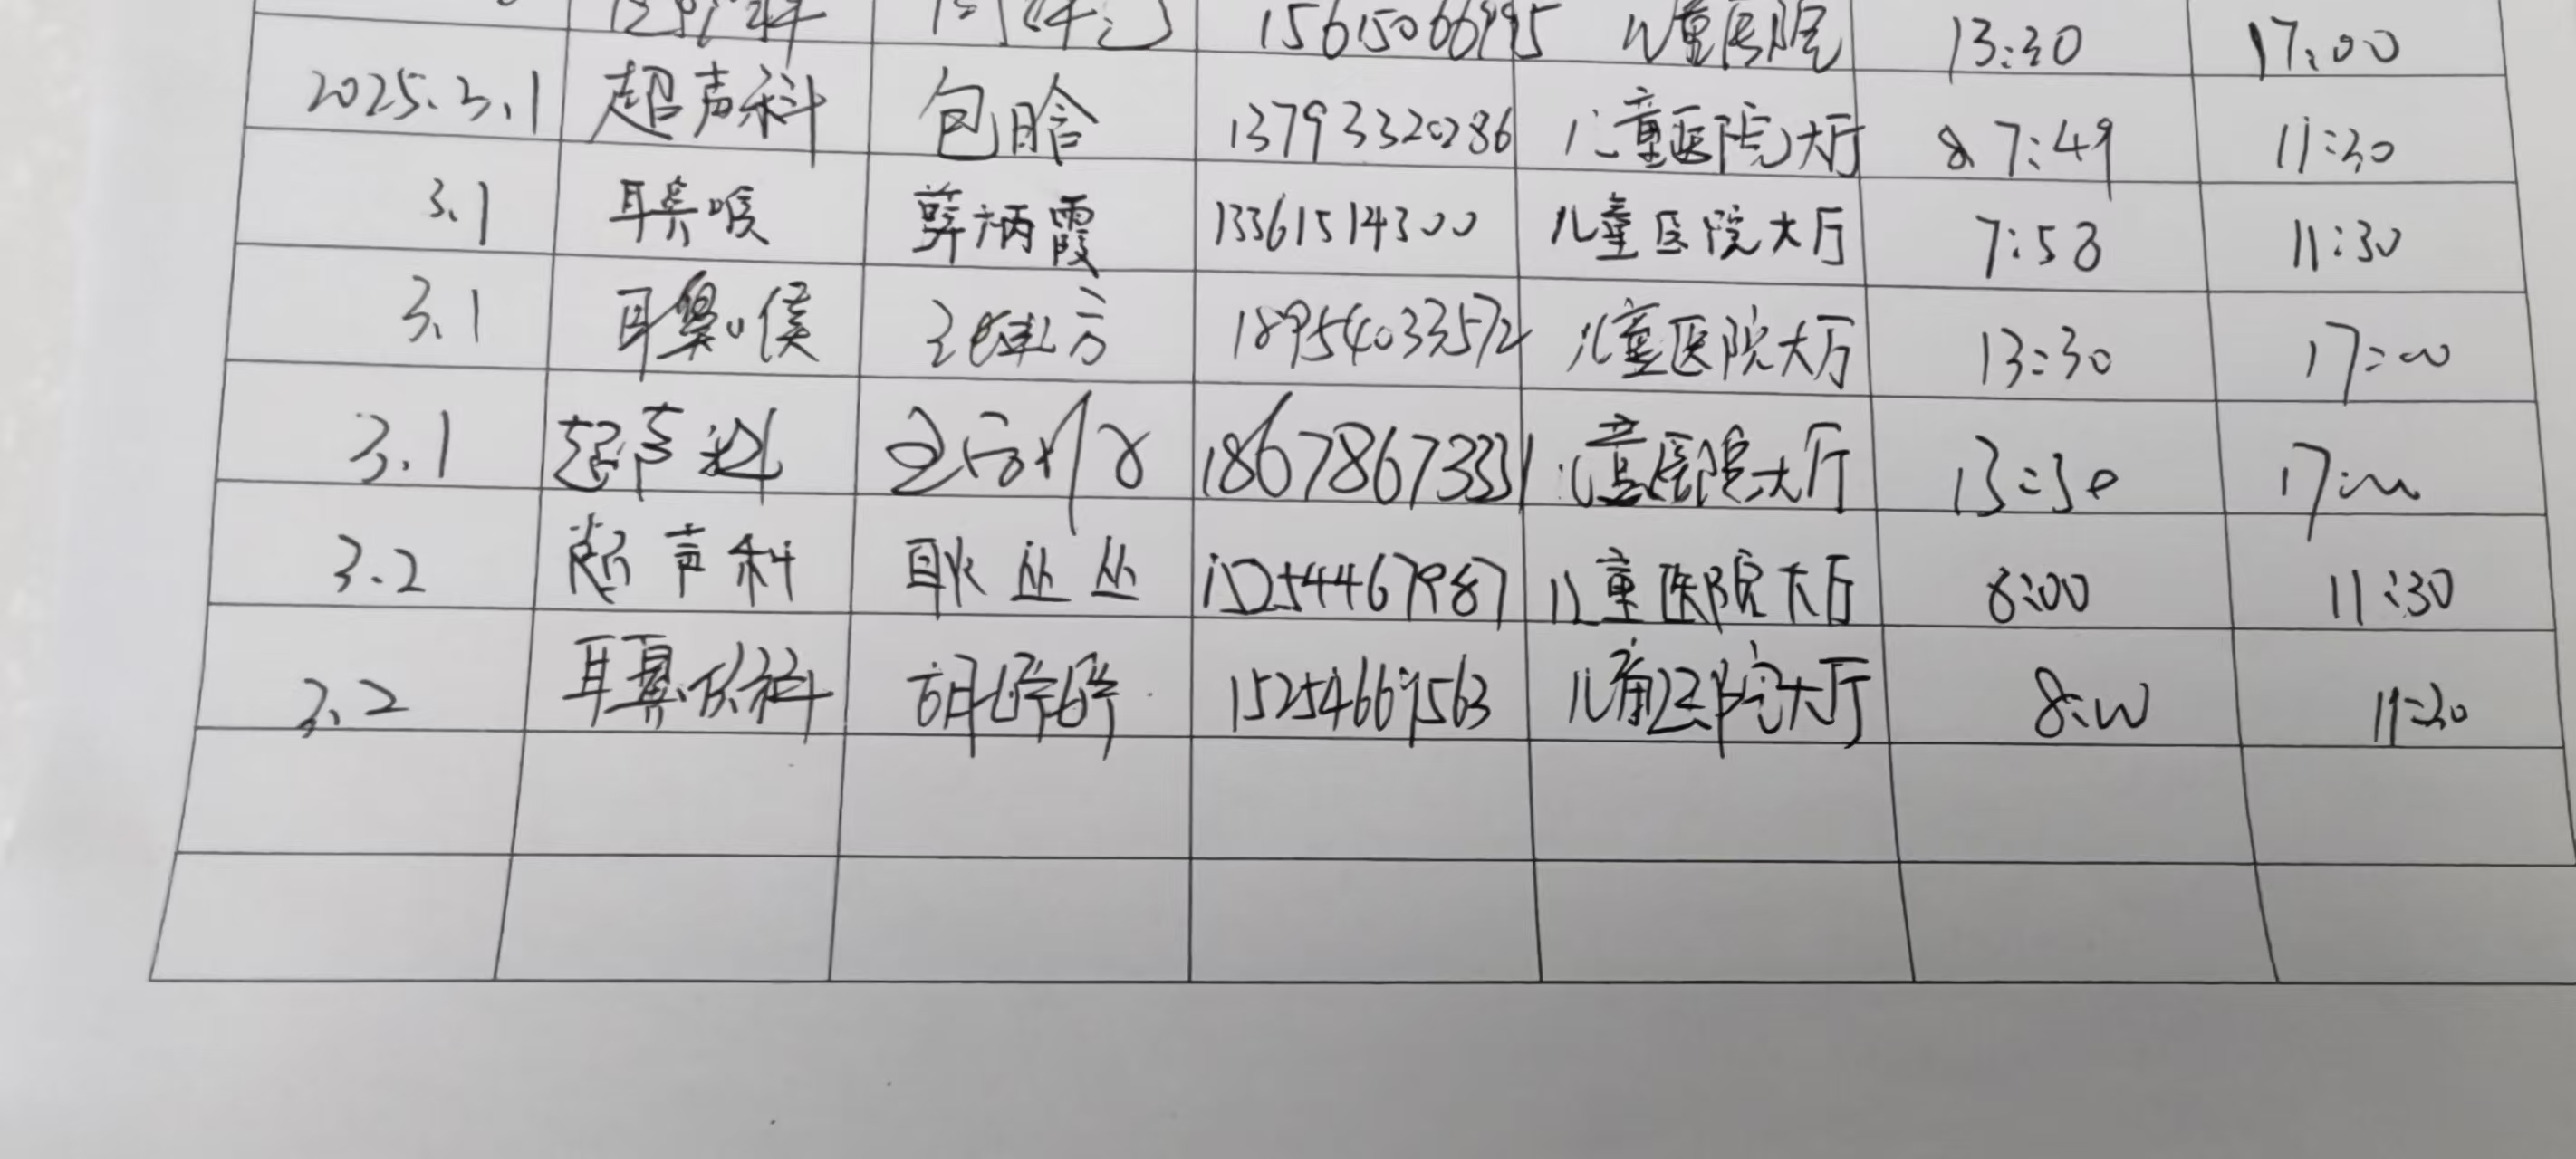 15615066995 儿童医院 13:30 17:00
2025.3.1 超声科 包晗 13793320286 儿童医院大厅 7:49 11:30
3.1 耳鼻喉 薛炳霞 13361514300 儿童医院大厅 7:58 11:30
3.1 耳鼻喉 18954033572 儿童医院大厅 13:30 17:00
3.1 超声科 18678673331 儿童医院大厅 13:30 17:00
3.2 超声科 耿丛丛 15254467987 儿童医院大厅 8:00 11:30
3.2 耳鼻喉科 胡婷婷 15254669563 儿童医院大厅 8:00 11:30